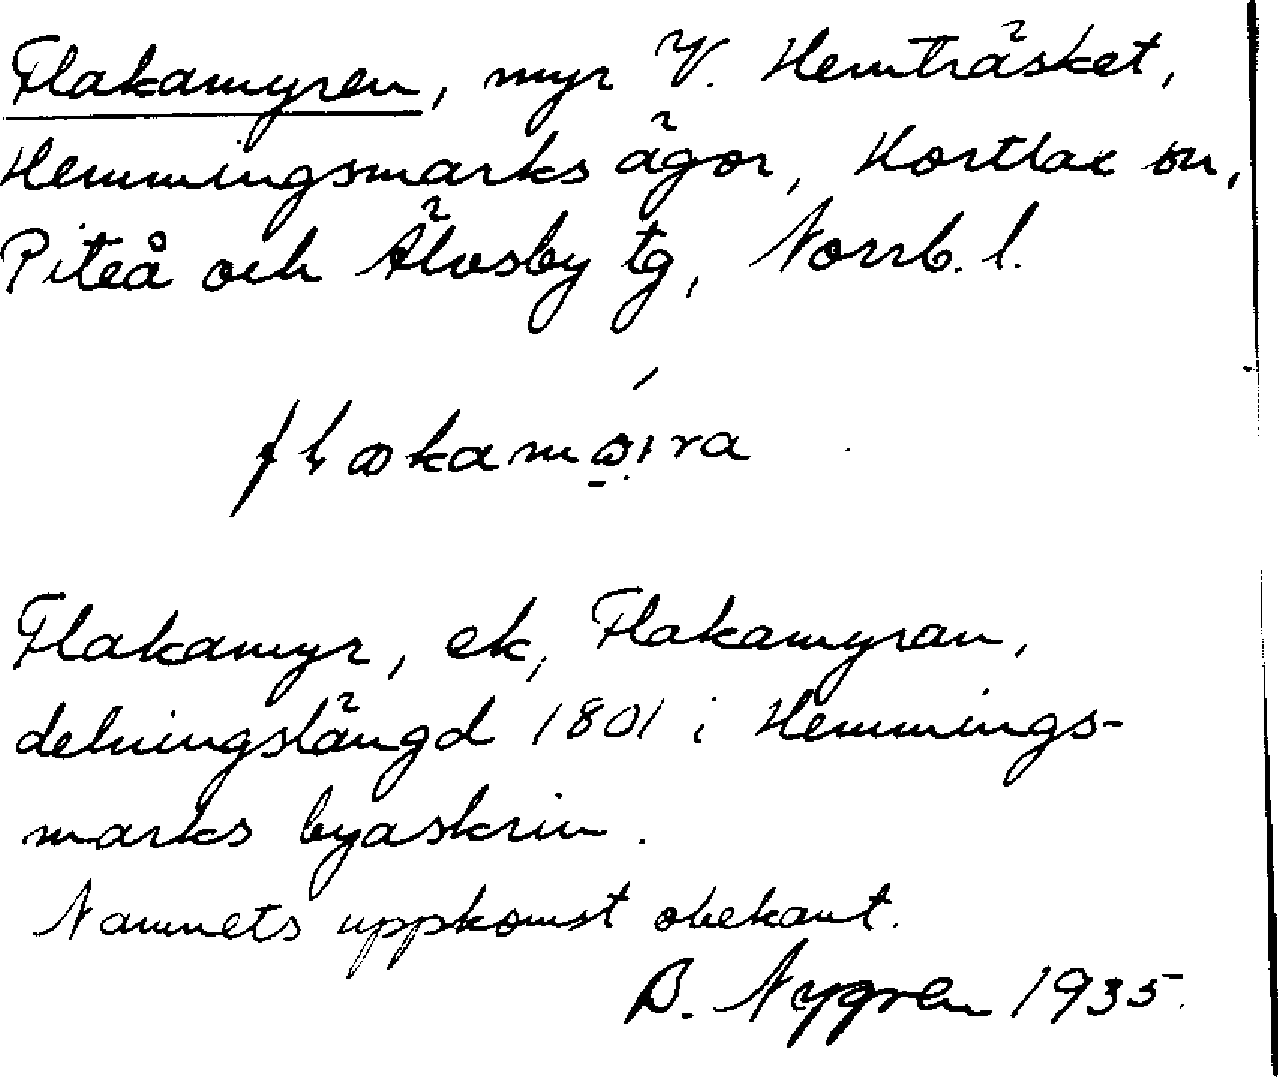 Flakamyren, myr V. Hemträsket,
Hemmingsmarks ägor, Hortlax sn,
Piteå och Älvsby tg, Norrb. l.
Flakamyr, ek, Flakamyran,
delningslängd 1801 i Hemmings-
marks byaskrin.
Namnets uppkomst obekant.
B. Nygren 1935.